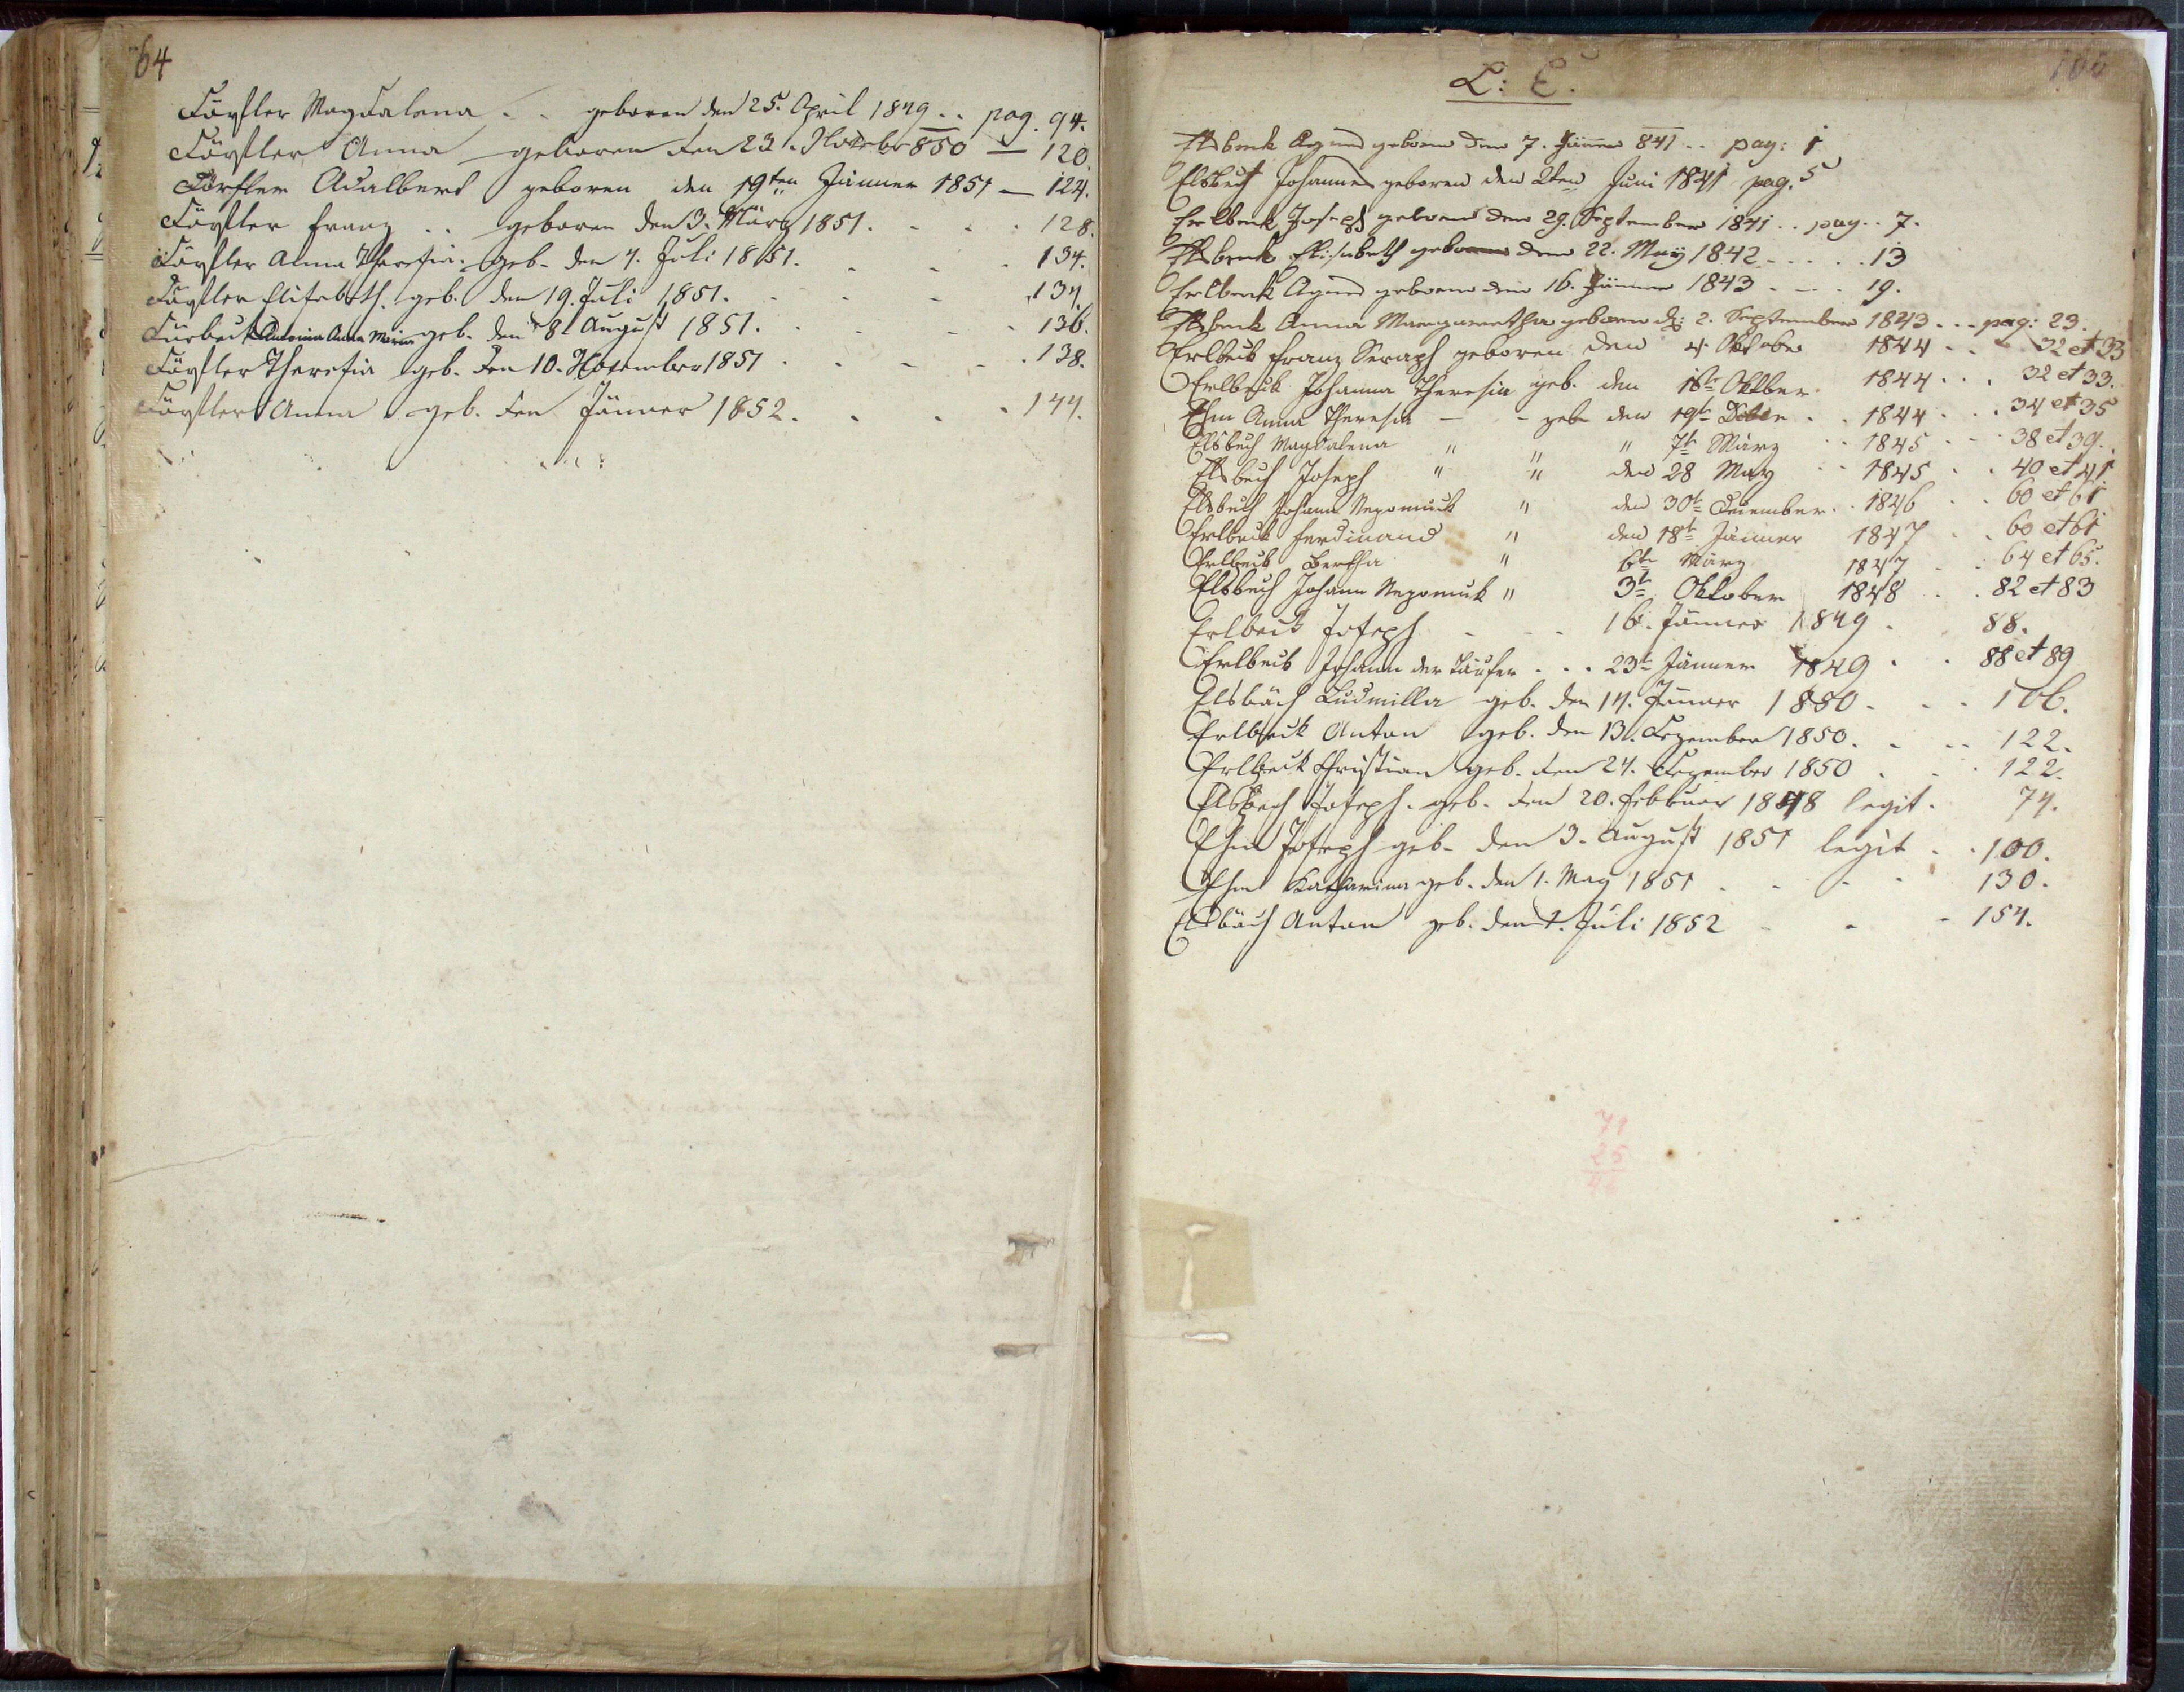 64
Dörfler Magdalena . . geboren den 25. April 1849 . . pag. 94.
Dörfler Anna geboren den 23. Novebr 850 — 120.
Dörfler Adalbert geboren den 19ten Jänner 1851 — 124.
Dörfler Franz . . geboren den 3. März 1851. . . . 128.
Dörfler Anna Theresia. geb. den 4. Juli 1851. . . . 134.
Dörfler Elisabeth. geb. den 19. Juli 1851. . . . 134.
Antonia Anna Maria geb. den 8. August 1851. . . . 136.
Dörfler Theresia geb. den 10. November 1851 . . . . 138.
Dörfler Anna geb. den Jänner 1852. . . . 144.
L: E.
100
Elsbeck Agnes geboren den 7. Jänner 841 . . pag: 1
Elsbech Johannes geboren den 2ten Juni 1841 pag. 5
Erlbeck Joseph geboren den 29. September 1841 . . pag . . 7.
Elsbeck Elisabeth geboren den 22. May 1842 . . . . 13
Erlbeck Agnes geboren den 16. Jänner 1843 . . . 19.
Elsbeck Anna Margaretha geboren d: 2. September 1843 . . . pag: 23.
Erlbeck Franz Seraph geboren den 4. Oktober 1844 . . . 32 et 33
Erlbeck Johanna Theresia geb. den 18t Oktber. 1844 . . . 32 et 33.
Ehm Anna Theresia — - geb den 19t . . 1844 . . . 34 et 35
Elsbech Magdalena " " " 7t März . . 1845 . . . 38 et 39.
Elsbech Joseph " " den 28 May . . 1845 . . 40 et 41
Elsbech Johann Nepomuck " den 30t Dezember . . 1846 . . 60 et 61
Erlbeck Ferdinand " den 18t Jänner 1847 . . 60 et 61
Erlbeck Bertha " 6te März 1847 . . 64 et 65.
Elsbech Johann Nepomuck " 3t Oktober 1848 . . 82 et 83
Erlbeck Joseph - - - 16. Jänner 1849 . 88.
Erlbeck Johann der Täufer . . . 23t Jänner 1849 . . 88 et 89
Elsbäch Ludmilla geb. den 14. Jänner 1850. . . . 106.
Erlbeck Anton geb. den 13. Dezember 1850. . . . 122.
Erlbeck Christian geb. den 24. Dezember 1850 . . . 122.
Elsbech Joseph. geb. den 20. Februar 1848 legit. 74.
Ehm Joseph geb. den 3. August 1851 legit . . 100.
Ehm Katharina geb. den 1. May 1851 . . . . 130.
Elsbäch Anton geb. den 1. Juli 1852 - - - 154.
71
25
46